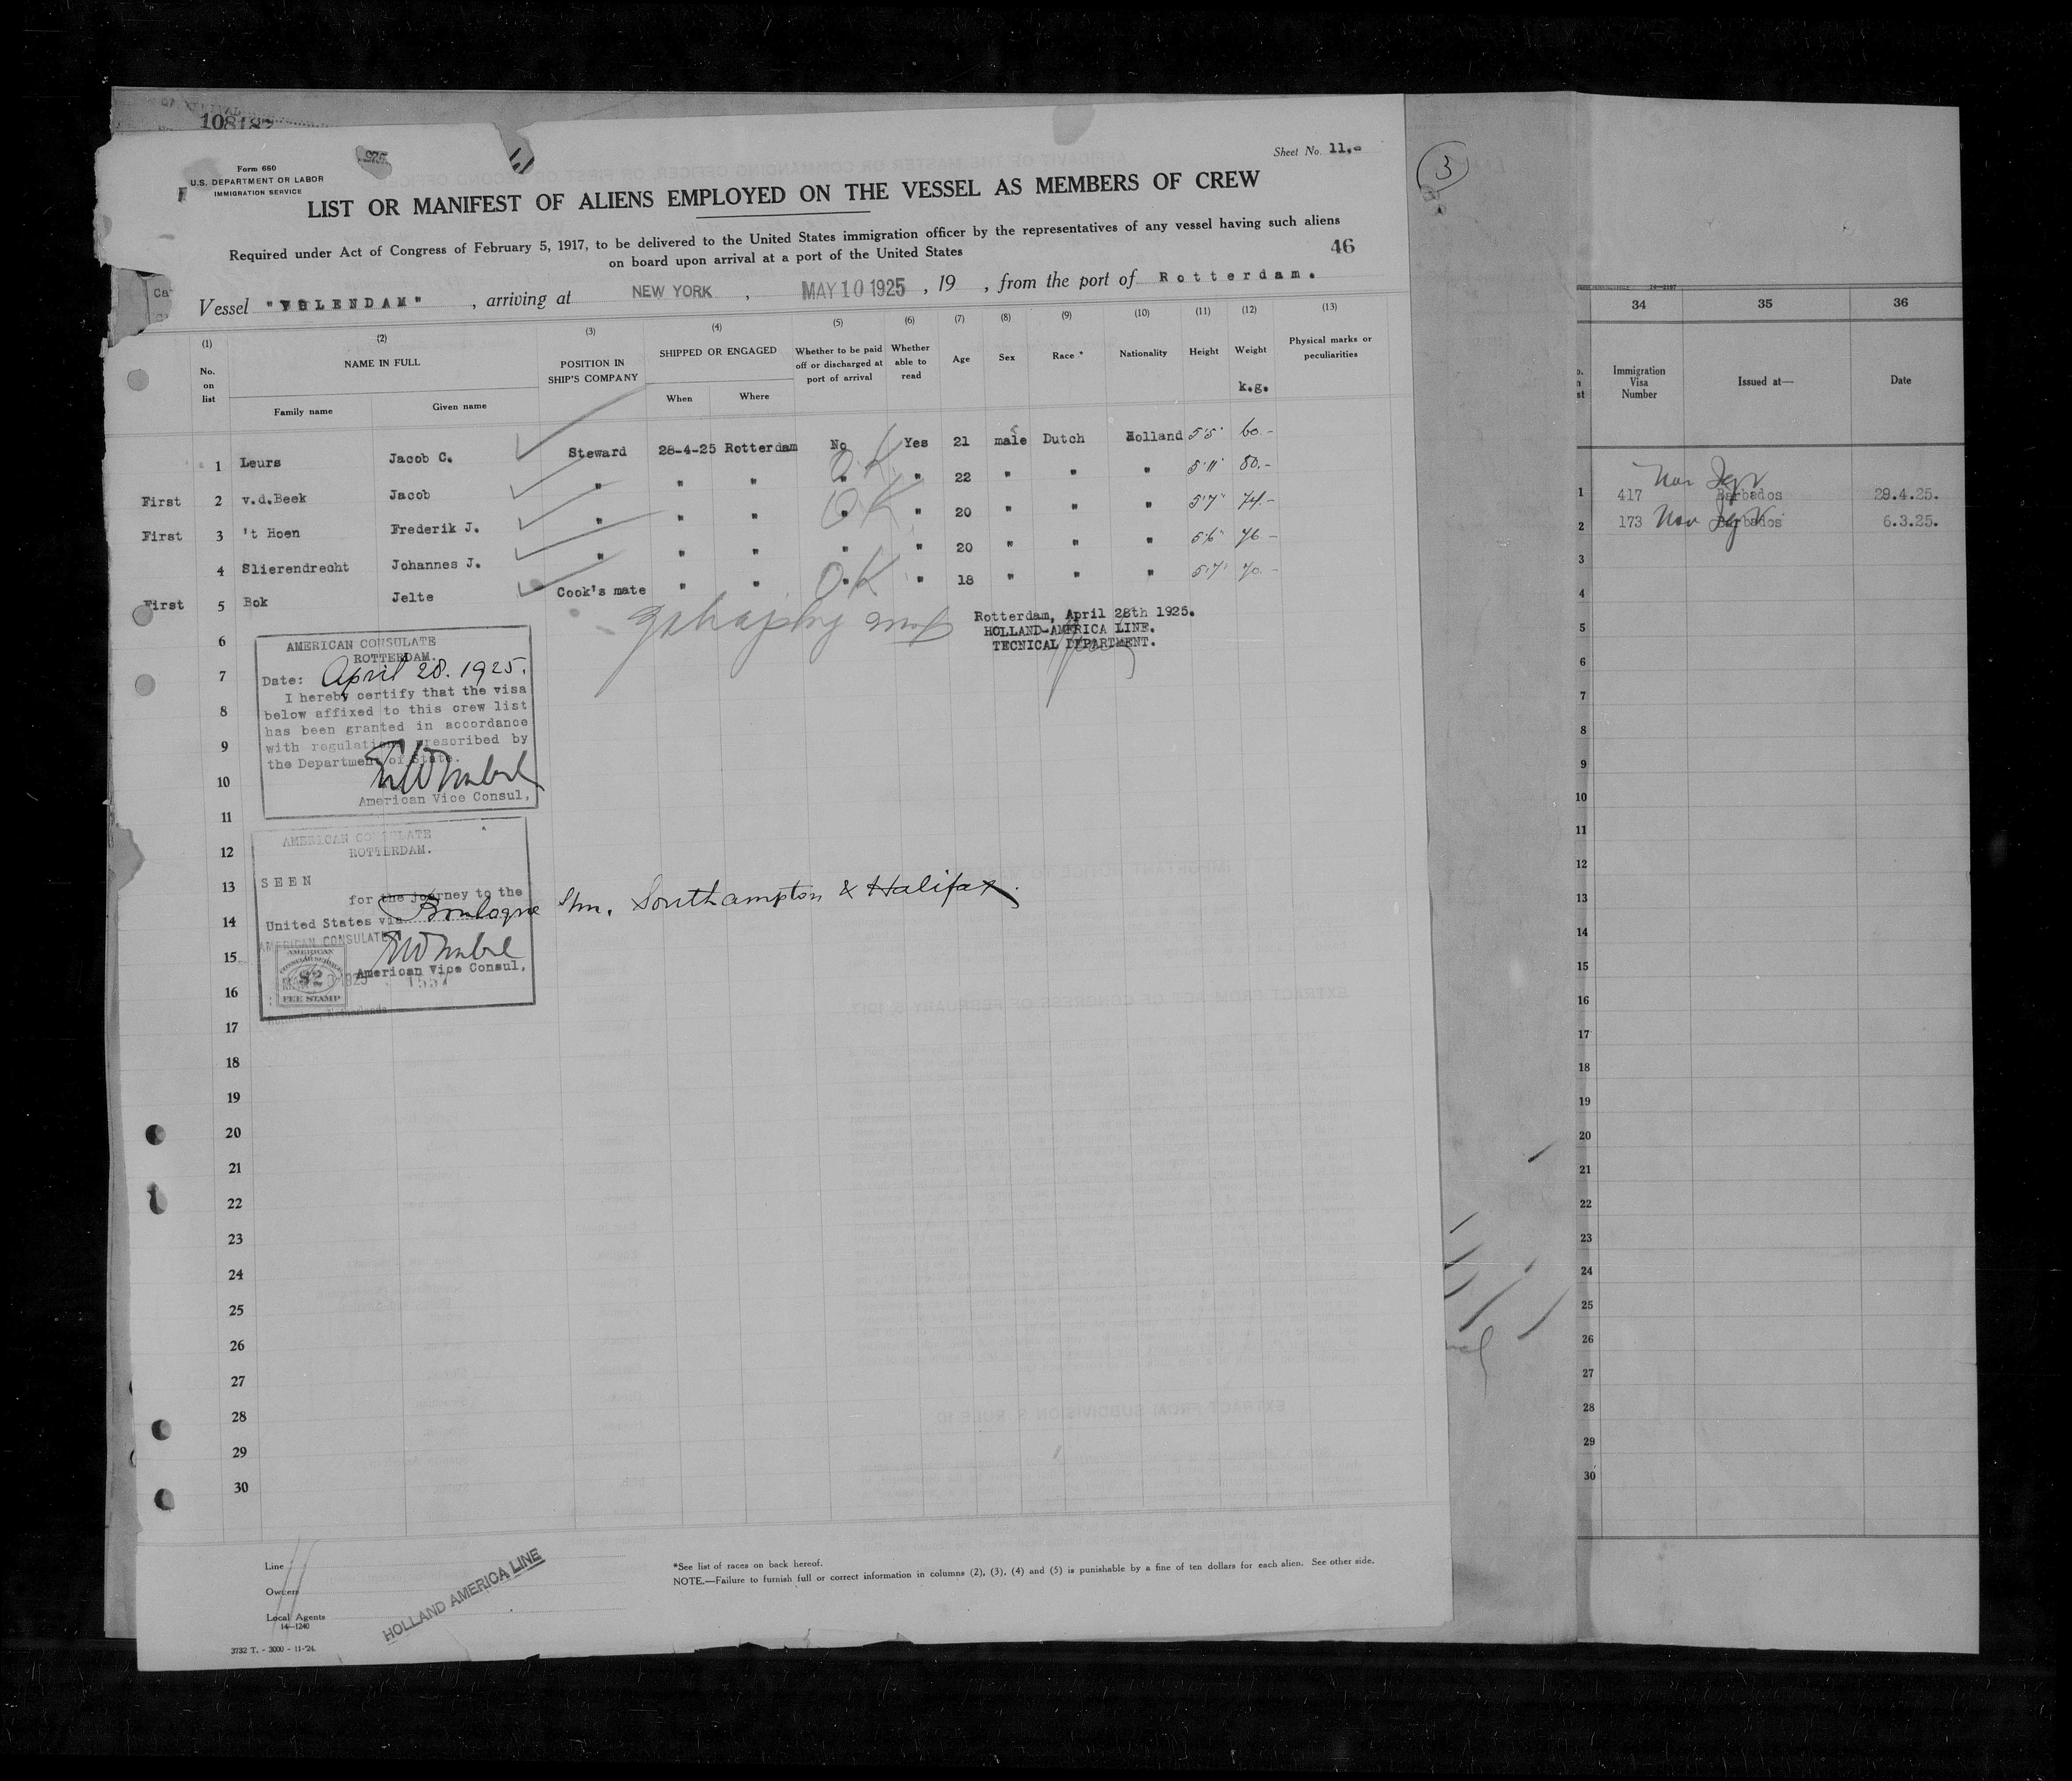 108187
Form 680
U.S. DEPARTMENT OR LABOR
IMMIGRATION SERVICE
Sheet No. 11.
3
LIST OR MANIFEST OF ALIENS EMPLOYED ON THE VESSEL AS MEMBERS OF CREW
Required under Act of Congress of February 5, 1917, to be delivered to the United States immigration officer by the representatives of any vessel having such aliens
on board upon arrival at a port of the United States
46
Vessel "VOLENDAM", arriving at NEW YORK, MAY 10 1925, 19 , from the port of Rotterdam.
(1) (2) (3) (4) (5) (6) (7) (8) (9) (10) (11) (12) (13)
No. on list
NAME IN FULL
Family name Given name
POSITION IN SHIP'S COMPANY
SHIPPED OR ENGAGED
When Where
Whether to be paid off or discharged at port of arrival
Whether able to read
Age
Sex
Race *
Nationality
Height
Weight
k.g.
Physical marks or peculiarities
1 Leurs Jacob C. Steward 28-4-25 Rotterdam No Yes 21 male Dutch Holland 5'5" 60.-
First 2 v.d.Beek Jacob " " " " " 22 " " " 5'11" 80.-
First 3 't Hoen Frederik J. " " " " " 20 " " " 5'7" 74-
4 Slierendrecht Johannes J. " " " " " 20 " " " 5'6" 76-
First 5 Bok Jelte Cook's mate " " " " 18 " " " 5'7" 70.-
OK
OK
OK
Rotterdam, April 28th 1925.
HOLLAND-AMERICA LINE.
TECNICAL DEPARTMENT.
6
7
8
9
10
11
12
13
14
15
16
17
18
19
20
21
22
23
24
25
26
27
28
29
30
AMERICAN CONSULATE
ROTTERDAM.
Date: April 28. 1925.
I hereby certify that the visa
below affixed to this crew list
has been granted in accordance
with regulations prescribed by
the Department of State.
American Vice Consul,
AMERICAN CONSULATE
ROTTERDAM.
SEEN
for the journey to the
United States via Boulogne s/m. Southampton & Halifax.
AMERICAN CONSULATE
AMERICAN
CONSULAR SERVICE
$2
FEE STAMP
1925
American Vice Consul,
Line
Owners
Local Agents
14-1240
HOLLAND AMERICA LINE
3732 T. - 3000 - 11-'24.
*See list of races on back hereof.
NOTE.—Failure to furnish full or correct information in columns (2), (3), (4) and (5) is punishable by a fine of ten dollars for each alien. See other side.
34 35 36
Immigration Visa Number
Issued at—
Date
1 417 Barbados 29.4.25.
2 173 Barbados 6.3.25.
3
4
5
6
7
8
9
10
11
12
13
14
15
16
17
18
19
20
21
22
23
24
25
26
27
28
29
30